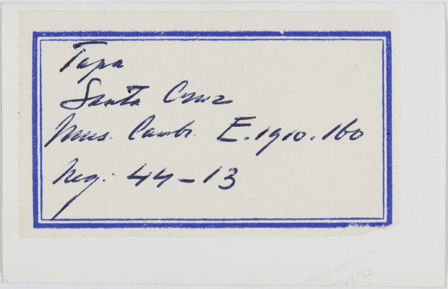 Tapa
Santa Cruz
Mus. Cambr. E.1910.160
Neg: 44-13